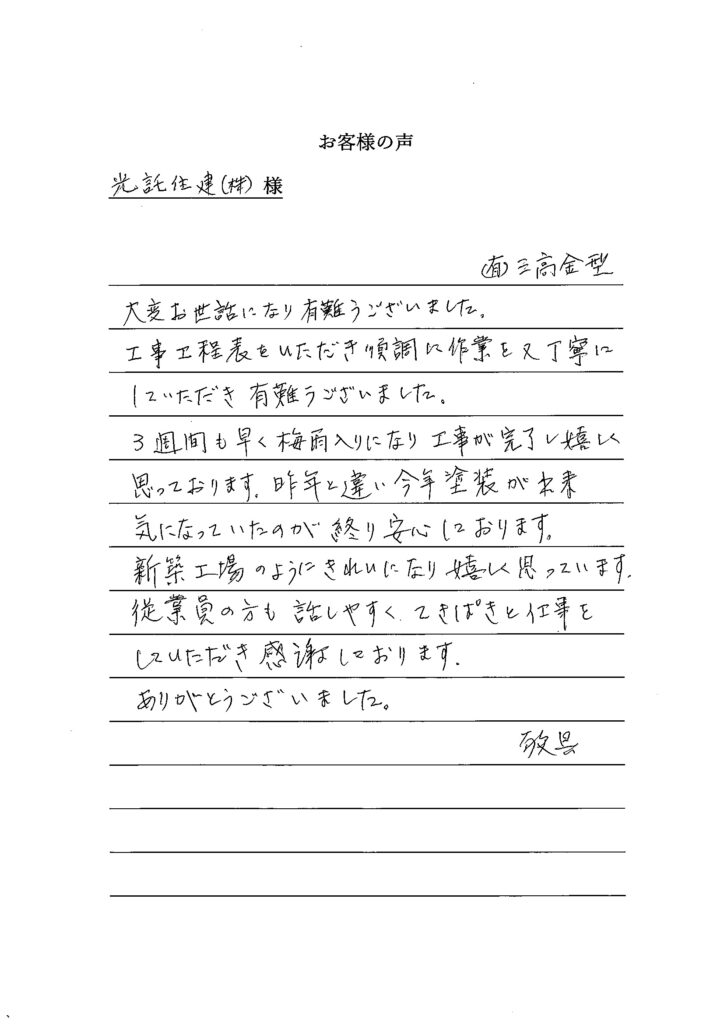 お客様の声
光託住建(株) 様
(有)三高金型
大変お世話になり有難うございました。
工事工程表をいただき順調に作業を又丁寧に
していただき有難うございました。
3週間も早く梅雨入りになり工事が完了し嬉しく
思っております。昨年と違い今年塗装が出来
気になっていたのが終り安心しております。
新築工場のようにきれいになり嬉しく思っています。
従業員の方も話しやすく、てきぱきと仕事を
していただき感謝しております。
ありがとうございました。
敬具